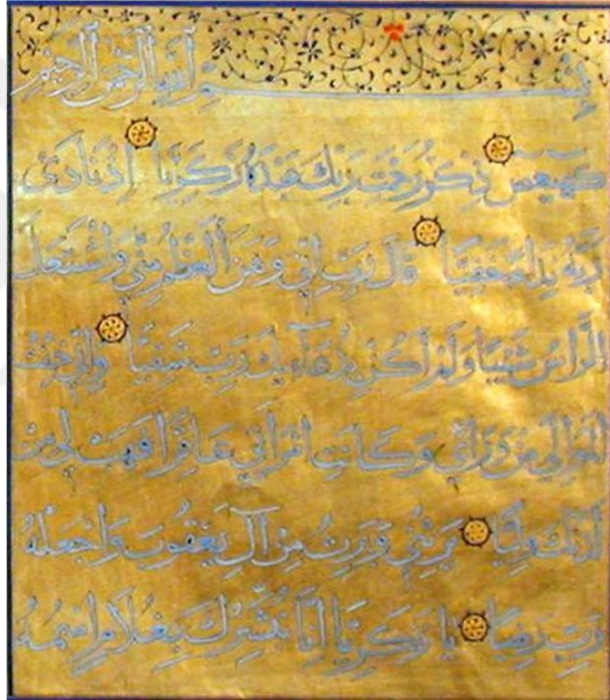 بسم الله الرحمن الرحيم
كهيعص ذكر رحمت ربك عبده زكريا اذ نادى
ربه نداء خفيا قال رب اني وهن العظم مني واشتعل
الراس شيبا ولم اكن بدعائك رب شقيا واني خفت
الموالي من ورائي وكانت امراتي عاقرا فهب لي من
لدنك وليا يرثني ويرث من آل يعقوب واجعله
رب رضيا يا زكريا انا نبشرك بغلام اسمه